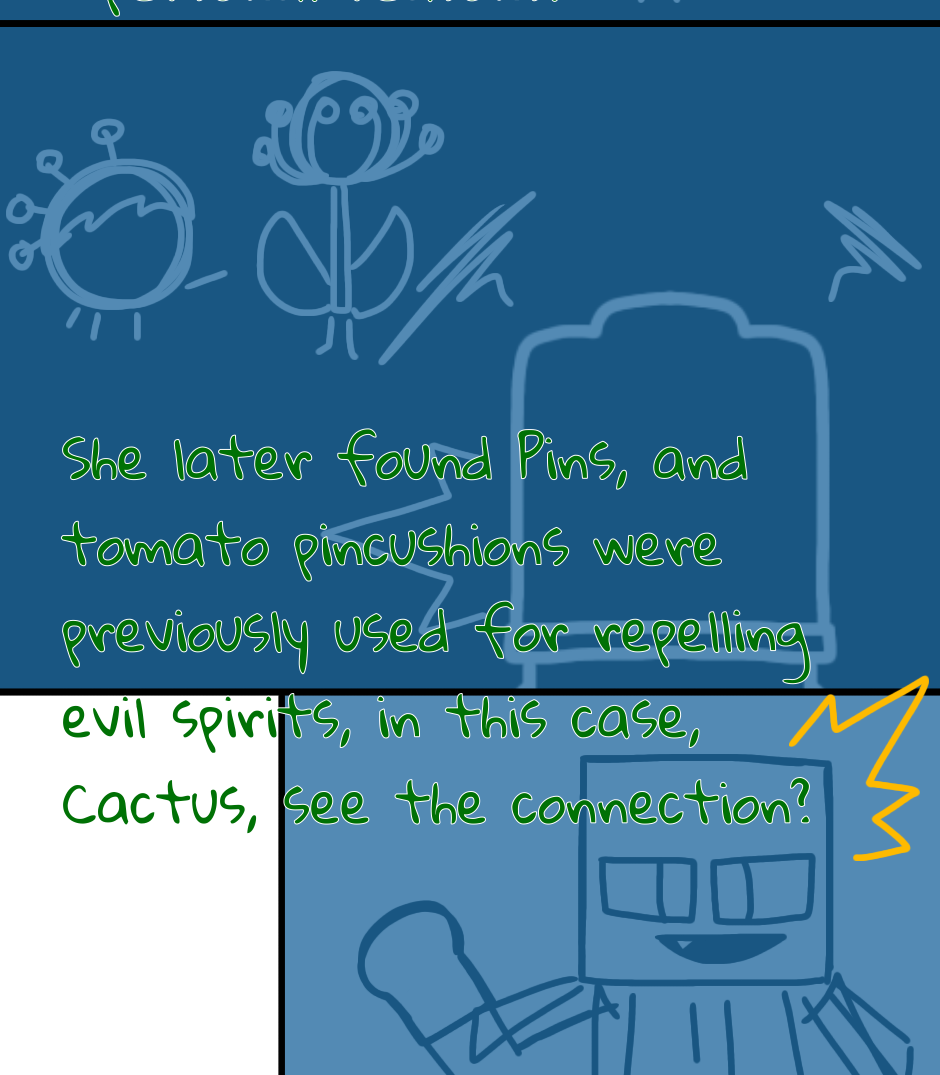 She later found Pins, and
tomato pincushions were
previously used for repelling
evil spirits, in this case,
Cactus, see the connection?